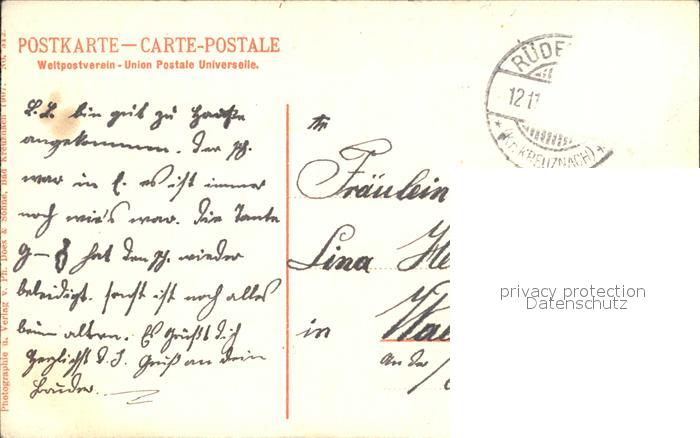 POSTKARTE — CARTE-POSTALE
Weltpostverein - Union Postale Universelle.
Photographie u. Verlag v. Ph. Does & Söhne, Bad Kreuznach 1907. No. 312.
RÜDE
12.11
* (Kr. KREUZNACH) *
L. L. bin gut zu Hause
angekommen. Der Sch.
war in E. es ist immer
noch wie's war. Die Tante
G— hat den Sch. wieder
beleidigt. sonst ist noch alles
beim alten. Es grüßt dich
herzlichst d. J. Gruß an dein
Bruder.
Fräulein
Lina He
in
An der
privacy protection
Datenschutz